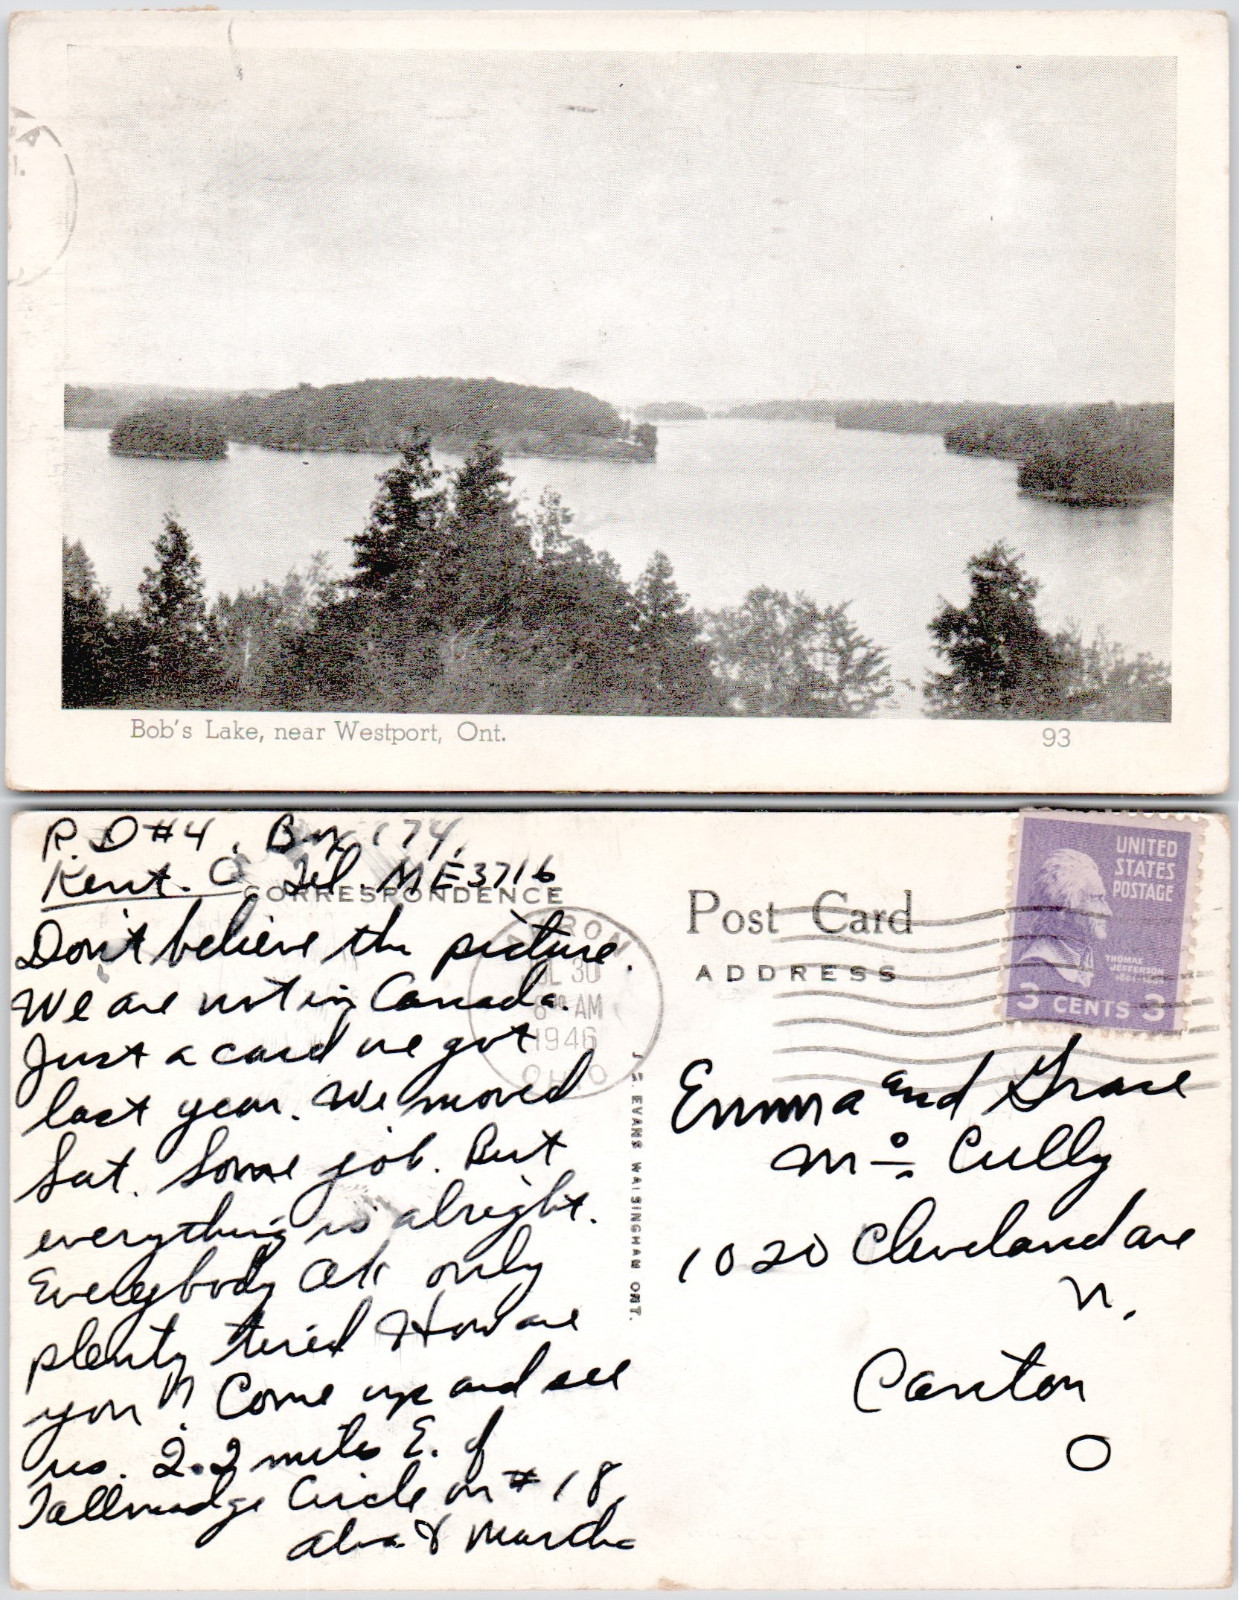 Bob's Lake, near Westport, Ont.
93
R.D#4, Box 174,
Kent. O Tel. ME3716
CORRESPONDENCE
Don't believe the picture.
We are not in Canada.
Just a card we got
last year. We moved
Sat. Some job. But
everything is alright.
Everybody OK only
plenty tired How are
you?? Come up and see
us. 2.2 miles E. of
Tallmadge Circle on #18,
Alva & Martha
AKRON
JUL 30
8 AM
1946
OHIO
J S EVANS WALSINGHAM ONT.
Post Card
ADDRESS
UNITED
STATES
POSTAGE
THOMAS
JEFFERSON
3 CENTS 3
Emma and Grace
Mc Cully
1020 Cleveland ave
N.
Canton
O